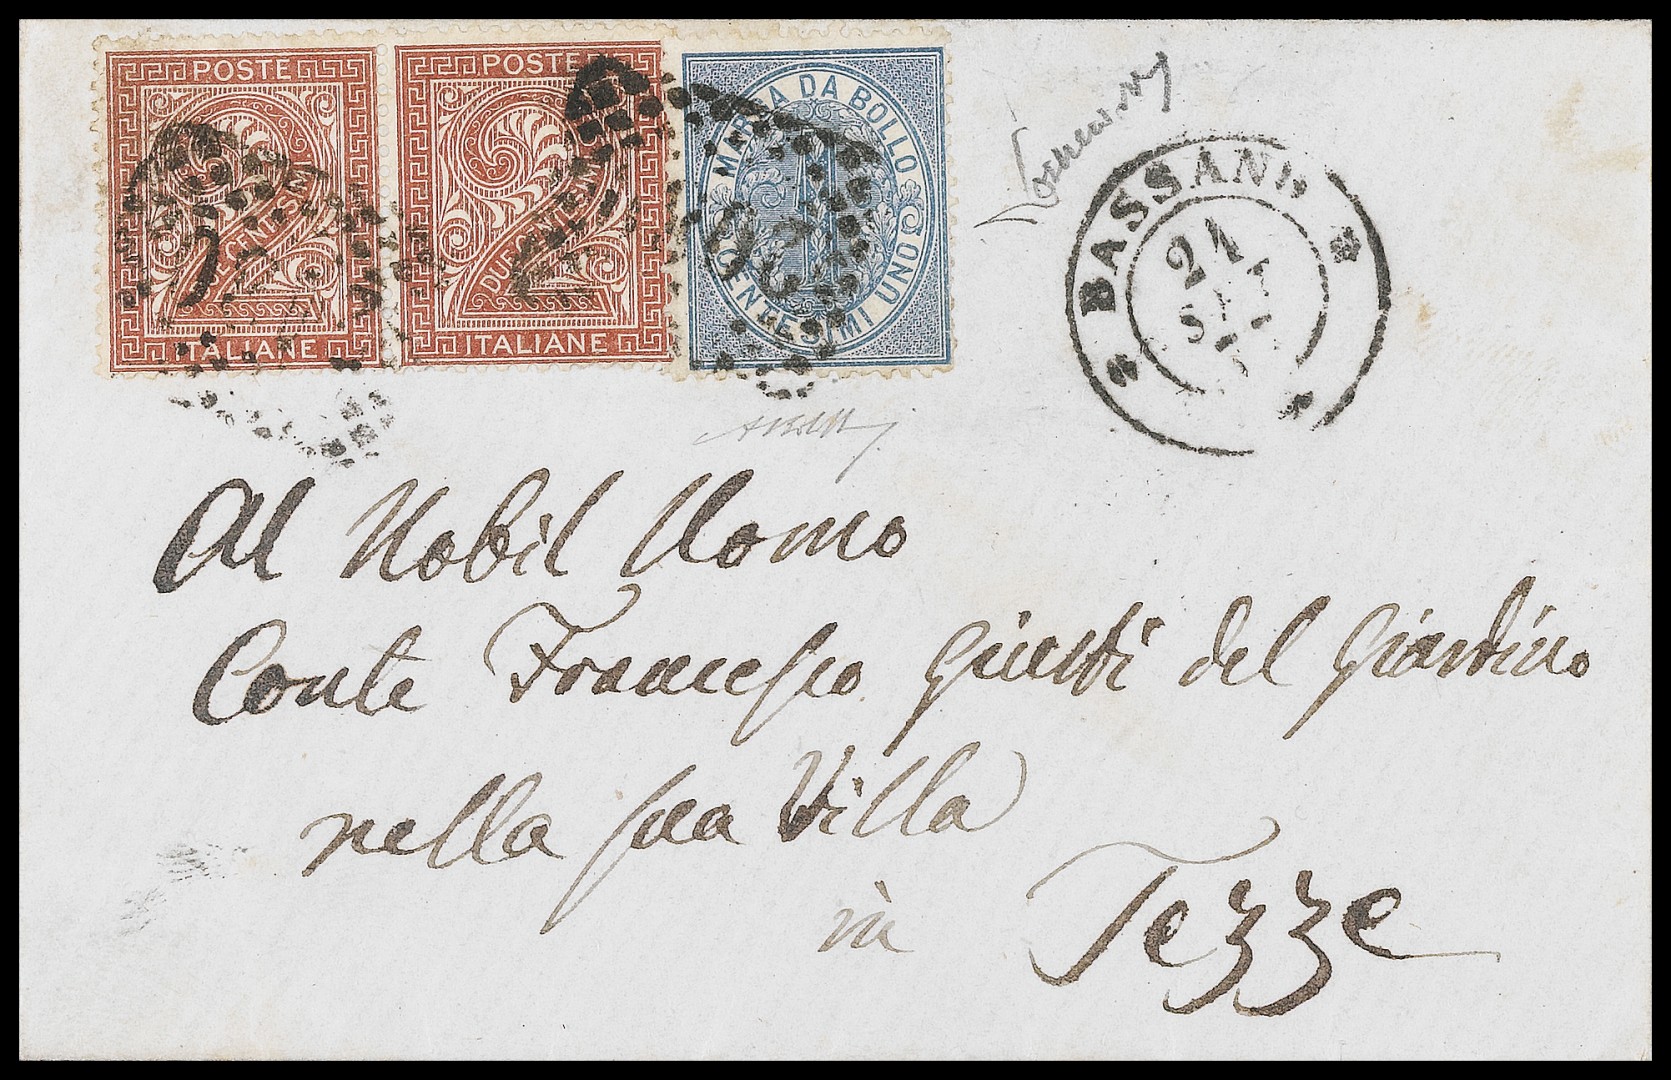 POSTE
DUE CENTESIMI
ITALIANE
POSTE
DUE CENTESIMI
ITALIANE
MARCA DA BOLLO
UNO CENTESIMI
1
BASSANO
21
SET
Al Nobil Uomo
Conte Francesco Giusti del Giardino
nella sua Villa
in Tezze